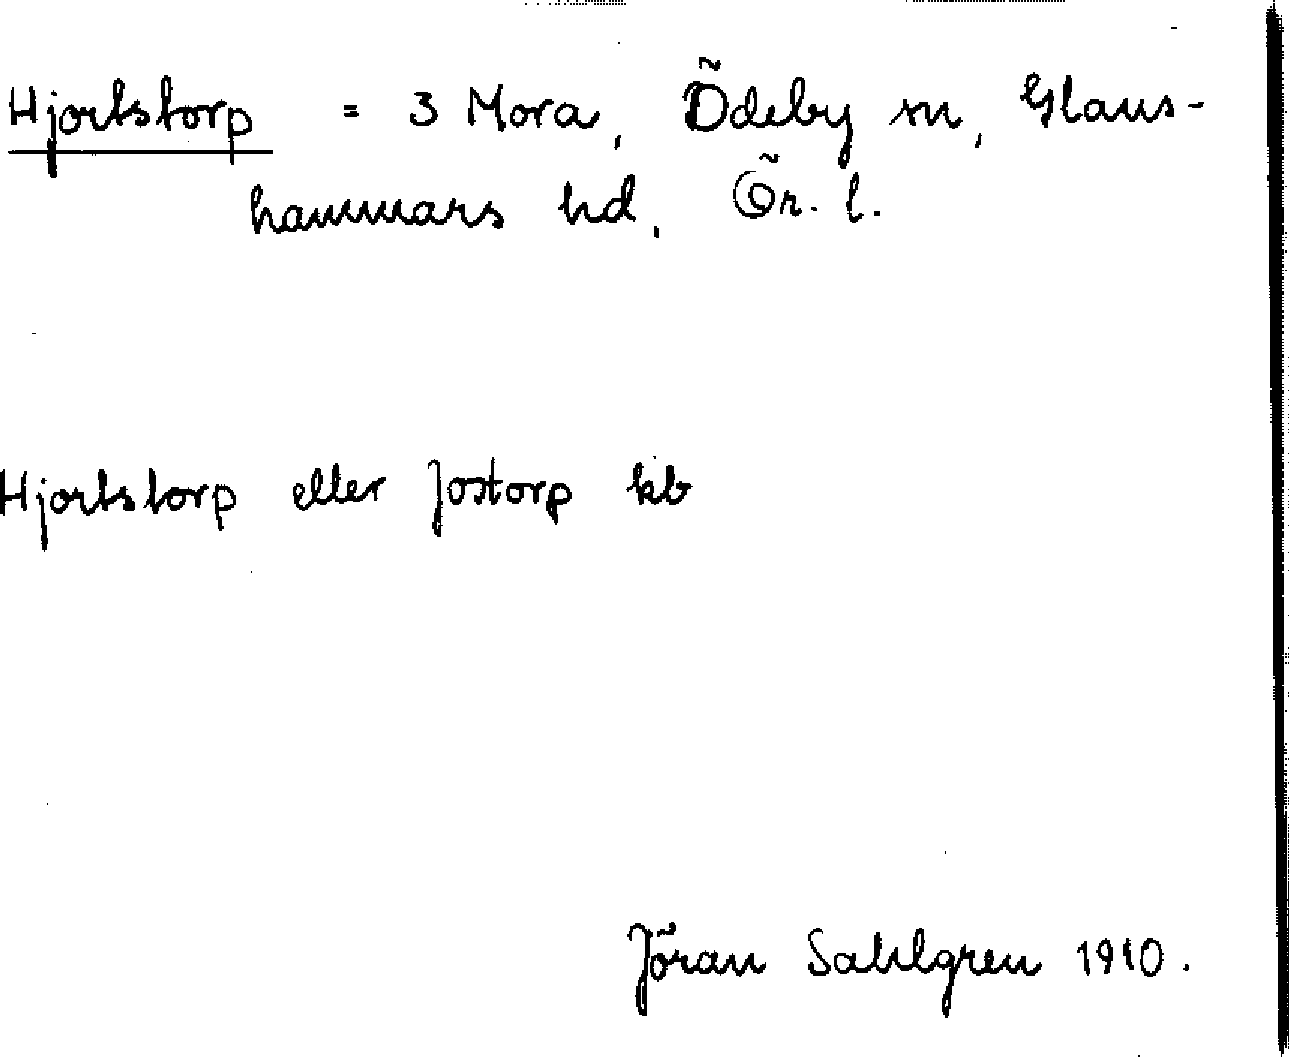 Hjortstorp = 3 Mora, Ödeby sn, Glans-
hammars hd, Ör. l.
Hjortstorp eller Jostorp kb
Jöran Sahlgren 1910.